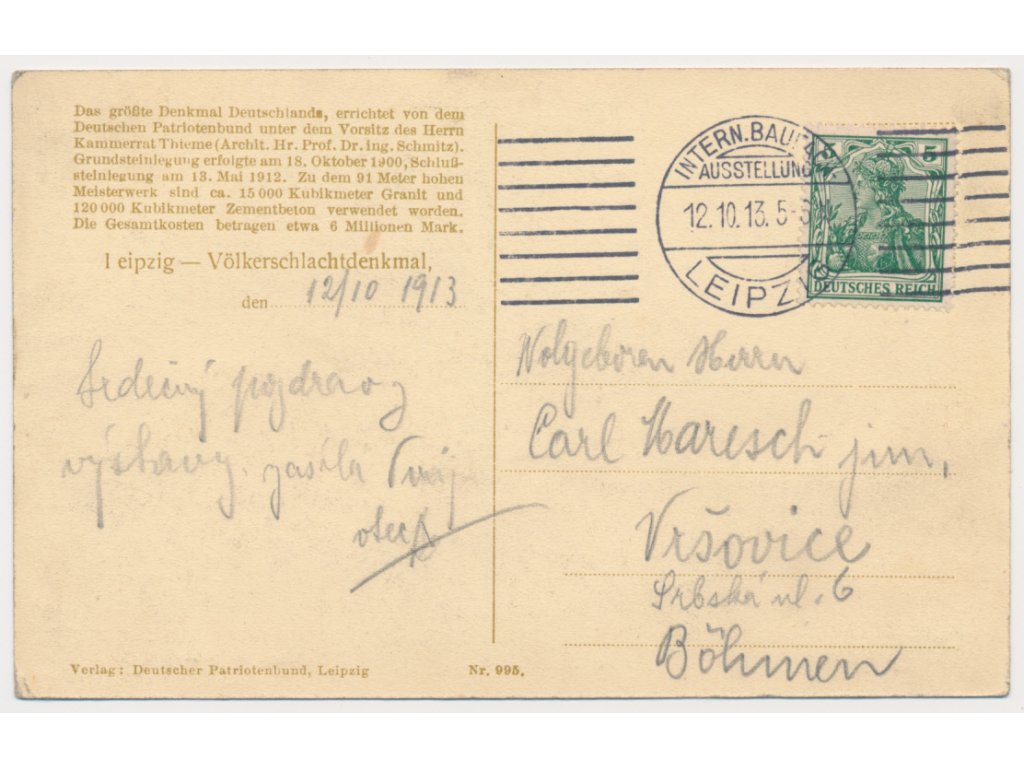 Das größte Denkmal Deutschlands, errichtet von dem
Deutschen Patriotenbund unter dem Vorsitz des Herrn
Kammerrat Thieme (Archit. Hr. Prof. Dr. ing. Schmitz).
Grundsteinlegung erfolgte am 18. Oktober 1900, Schluß-
steinlegung am 13. Mai 1912. Zu dem 91 Meter hohen
Meisterwerk sind ca. 15 000 Kubikmeter Granit und
120 000 Kubikmeter Zementbeton verwendet worden.
Die Gesamtkosten betragen etwa 6 Millionen Mark.
Leipzig — Völkerschlachtdenkmal,
den 12/10 1913
Srdečný pozdrav z
výstavy zasílá Tvůj
otec
Verlag: Deutscher Patriotenbund, Leipzig
Nr. 995.
INTERN. BAU
AUSSTELLUNG
12.10.13. 5-
LEIPZIG
5 5
DEUTSCHES REICH
Wolgeboren Herrn
Carl Maresch jun,
Vršovice
Srbská ul. 6
Böhmen